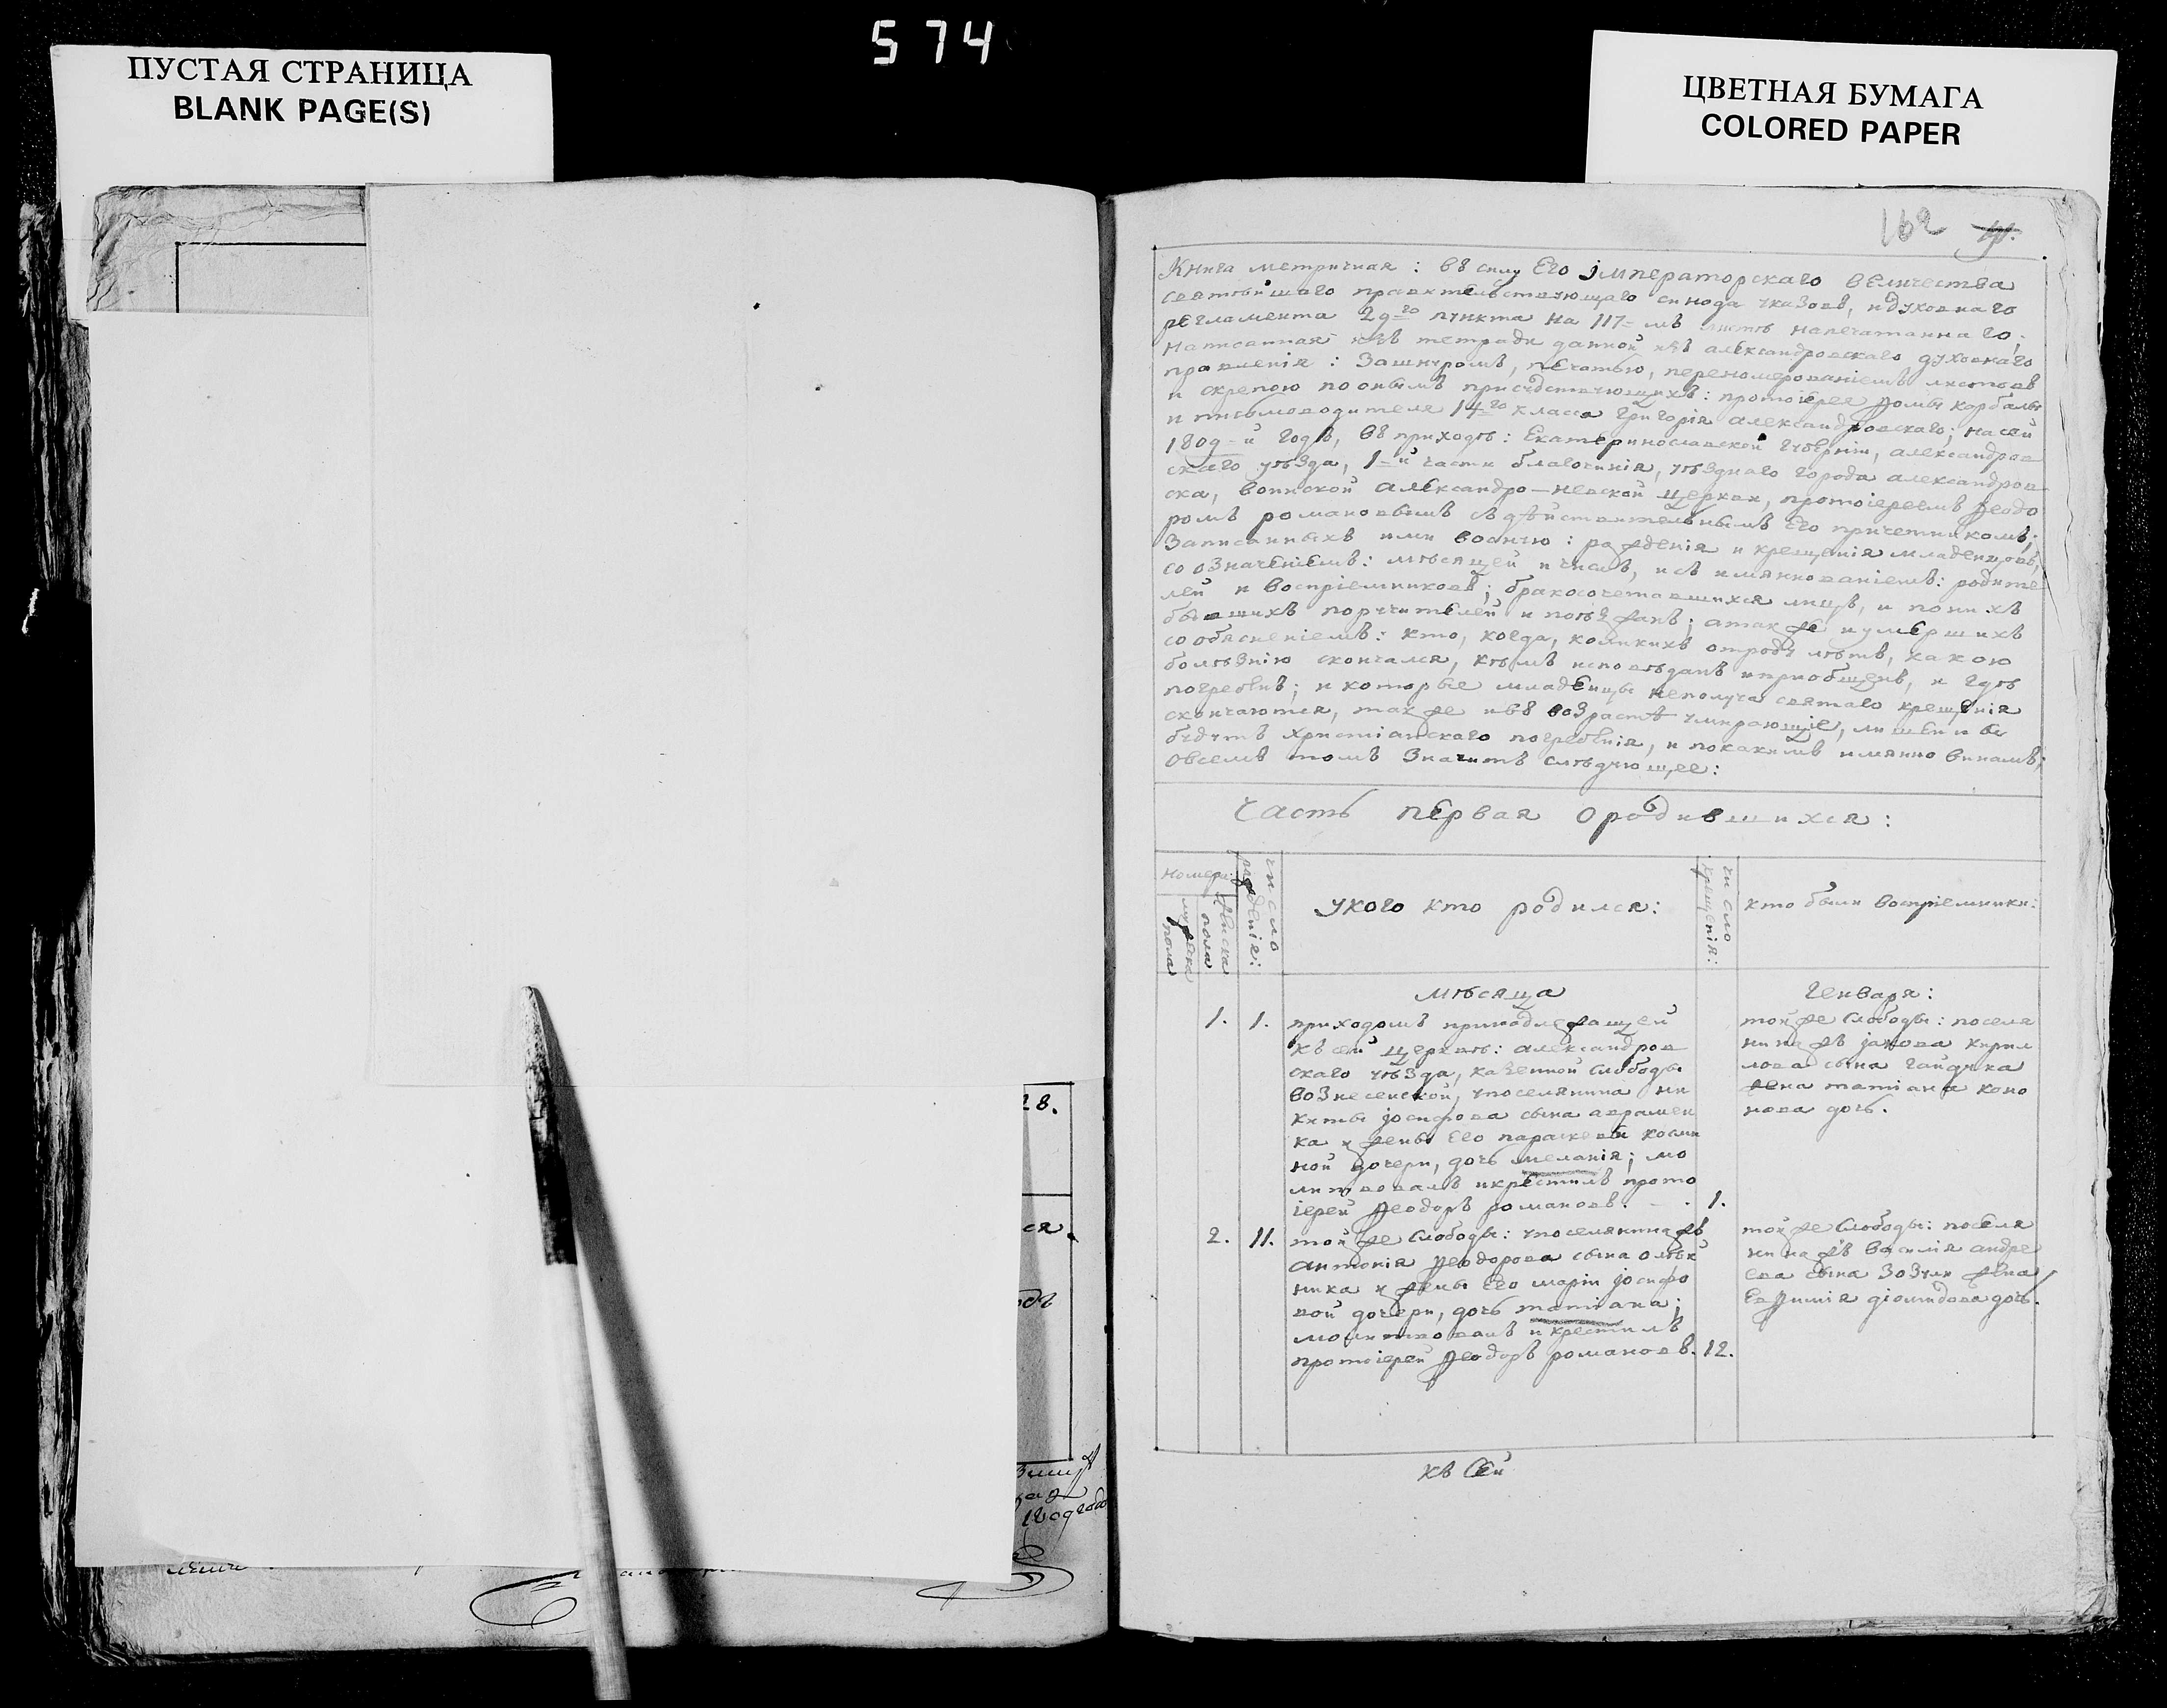 574
ПУСТАЯ СТРАНИЦА
BLANK PAGE(S)
ЦВЕТНАЯ БУМАГА
COLORED PAPER
162
Книга метричная: въ силу Его императорскаго величества
святѣйшаго правительствующаго синода указовъ, и духовнаго
регламента 29-го пункта на 117-мъ листѣ напечатаннаго;
написанная въ тетради данной изъ александровскаго духовнаго
правленія: за шнуромъ, печатью, перенomерованіемъ листовъ
и скрепою по онымъ присудствующихъ: протоіерея Ѳомы Карбаны
и писмоводителя 14-го класса григорія александровскаго; на сей
1809-й годъ, въ приходѣ: Екатеринославской губерніи, александров
скаго уѣзда, 1-й части благочинія, уѣзднаго города александров
ска, воинской александро-невской церкви, протоіереемъ Ѳеодо
ромъ романовымъ съ дѣйствительнымъ Его причетникомъ;
записанныхъ ими воеичю: рожденія и крещенія младенцовъ,
со означеніемъ: мѣсяцей и числъ, и съ имяннованіемъ: родите
лей и воспріемниковъ; бракосочетавшихся лицъ, и по нихъ
бывшихъ поручителей и поѣзжанъ; а также и умершихъ
со обясненіемъ: кто, когда, коликихъ отроду лѣтъ, какою
болѣзнію скончался, кѣмъ исповѣданъ и пріобщенъ, и гдѣ
погребенъ; и которые младенцы неполуча святаго крещенія
скончаются, также и въ возрастѣ умирающіе, лишены бы
будутъ христіанскаго погребенія, и по какимъ имянно винамъ;
о всемъ томъ значитъ слѣдующее:
Часть первая о родившихся:
номери:
мужеска пола
женска пола
число рожденія:
у кого кто родился:
число крещенія:
кто были воспріемники:
мѣсяца
Генваря:
1. 1. приходомъ принадлежащей
къ сей церквѣ: александров
скаго уѣзда, казенной слободы
вознесенской, у поселянина ни
киты іосифова сына авраmен
ка и жены Его параскевы косми
ной дочери, дочь меланія; мо
литвовалъ и крестилъ прото
іерей Ѳеодоръ романовъ. 1.
тойже слободы: поселя
нина жъ іакова кирил
лова сына гайдука
жена татіана коно
нова дочь.
2. 11. тойже слободы: у поселянина жъ
антонія Ѳеодорова сына олѣй
ника и жены Его маріи іосифо
вой дочери, дочь татіана;
молитвовалъ и крестилъ
протоіерей Ѳеодоръ романовъ. 12.
тойже слободы: поселя
нина жъ василія андре
ева сына зозули жена
Евфимія діомидова дочь.
къ Сей
28.
ся.